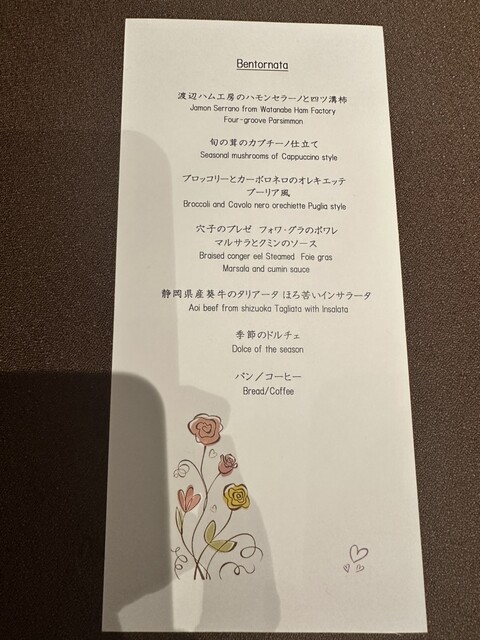 Bentornata
渡辺ハム工房のハモンセラーノと四ツ溝柿
Jamon Serrano from Watanabe Ham Factory
Four-groove Parsimmon
旬の茸のカプチーノ仕立て
Seasonal mushrooms of Cappuccino style
ブロッコリーとカーボロネロのオレキエッテ
プーリア風
Broccoli and Cavolo nero orechiette Puglia style
穴子のブレゼ フォワ・グラのポワレ
マルサラとクミンのソース
Braised conger eel Steamed Foie gras
Marsala and cumin sauce
静岡県産葵牛のタリアータ ほろ苦いインサラータ
Aoi beef from shizuoka Tagliata with Insalata
季節のドルチェ
Dolce of the season
パン／コーヒー
Bread/Coffee